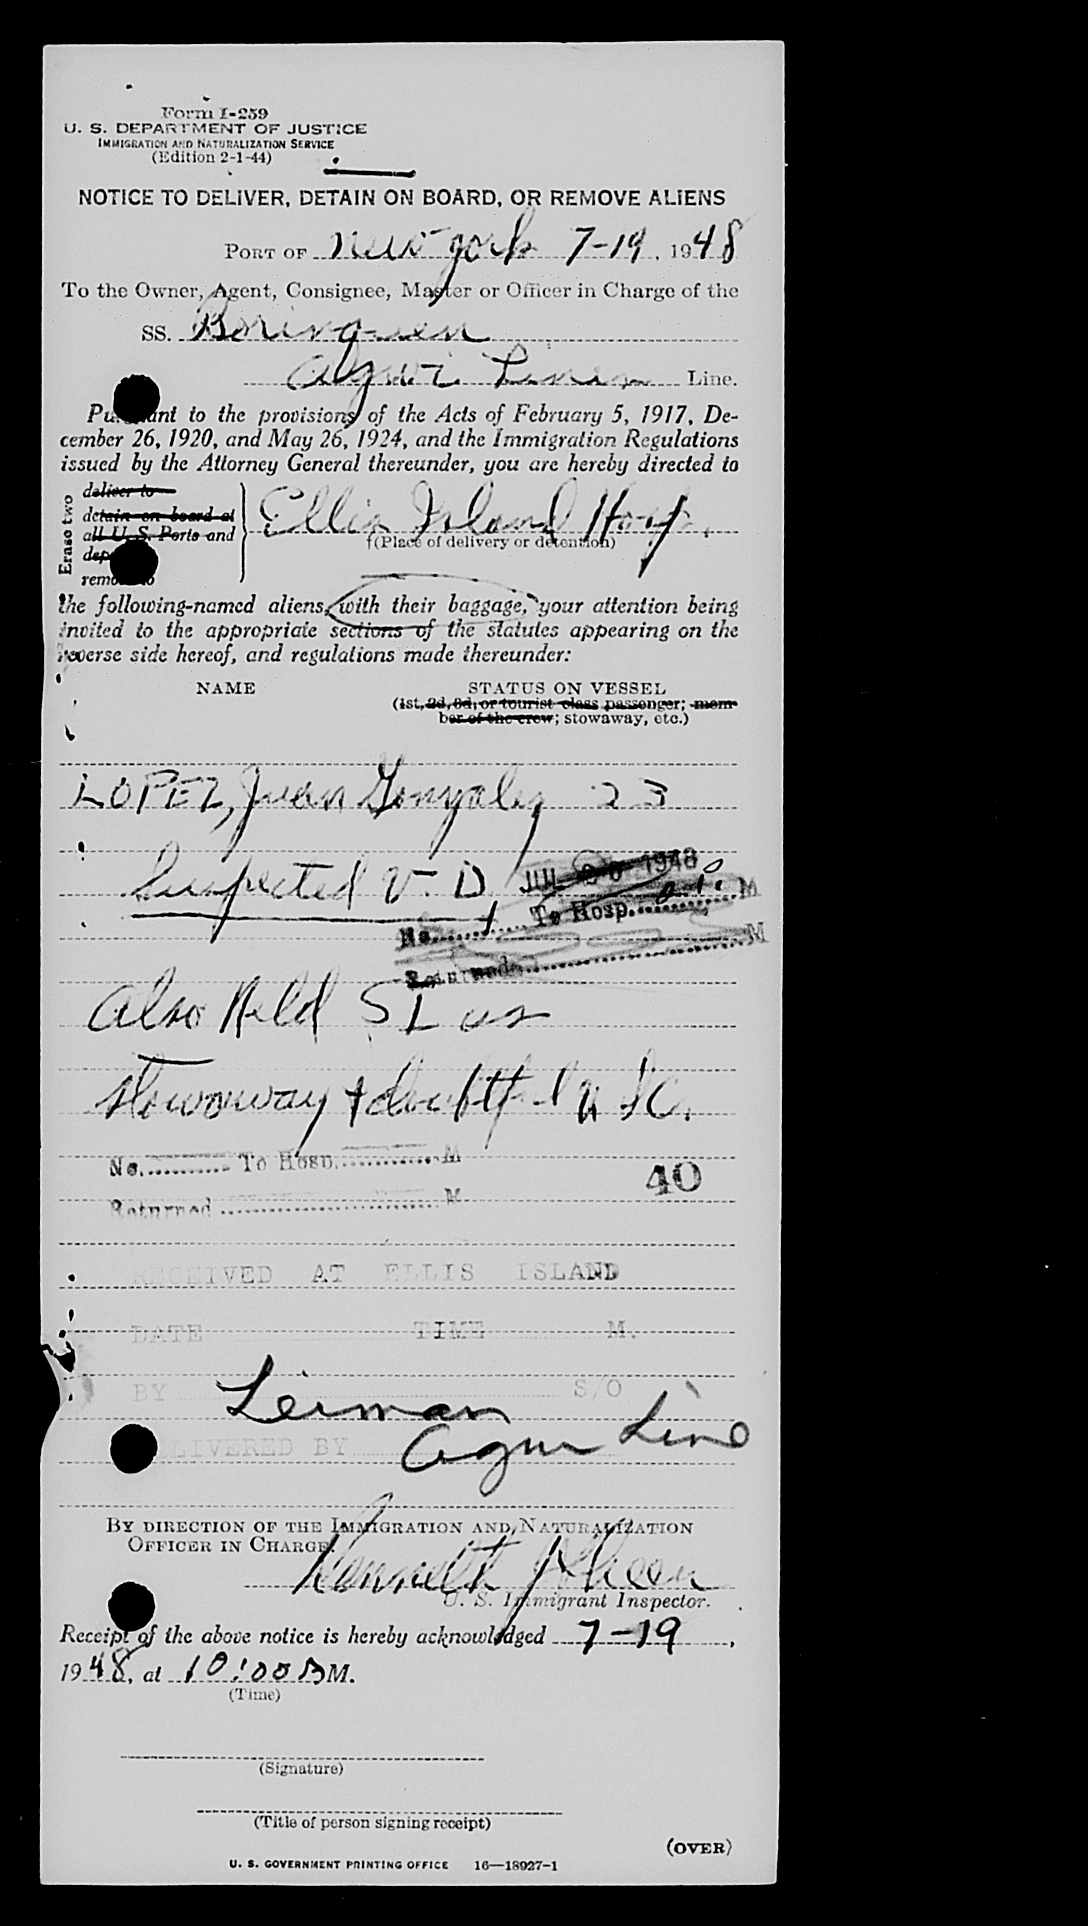 Form I-259
U. S. DEPARTMENT OF JUSTICE
IMMIGRATION AND NATURALIZATION SERVICE
(Edition 2-1-44)
NOTICE TO DELIVER, DETAIN ON BOARD, OR REMOVE ALIENS
PORT OF New York 7-19, 1948
To the Owner, Agent, Consignee, Master or Officer in Charge of the
SS. Borinquen
Agwi Lines Line.
Pursuant to the provisions of the Acts of February 5, 1917, De-
cember 26, 1920, and May 26, 1924, and the Immigration Regulations
issued by the Attorney General thereunder, you are hereby directed to
Erase two
deliver to
detain on board at
all U. S. Ports and
remove to
Ellis Island Hosp.
(Place of delivery or detention)
the following-named aliens, with their baggage, your attention being
invited to the appropriate sections of the statutes appearing on the
reverse side hereof, and regulations made thereunder:
NAME STATUS ON VESSEL
(1st, 2d, 3d, or tourist class passenger; mem-
ber of the crew; stowaway, etc.)
LOPEZ, Juan Gonzalez 23
Suspected V. D. JUL 20 1948
No. To Hosp. M
Returned M
Also Held SI as
stowaway & doubtful USC.
No. To Hosp. M
40
Returned M
RECEIVED AT ELLIS ISLAND
DATE TIME M.
BY Leiman S/O
DELIVERED BY Agwi Line
BY DIRECTION OF THE IMMIGRATION AND NATURALIZATION
OFFICER IN CHARGE.
Kenneth
U. S. Immigrant Inspector.
Receipt of the above notice is hereby acknowledged 7-19,
1948, at 10:00 M.
(Time)
(Signature)
(Title of person signing receipt)
(OVER)
U. S. GOVERNMENT PRINTING OFFICE 16—18927-1